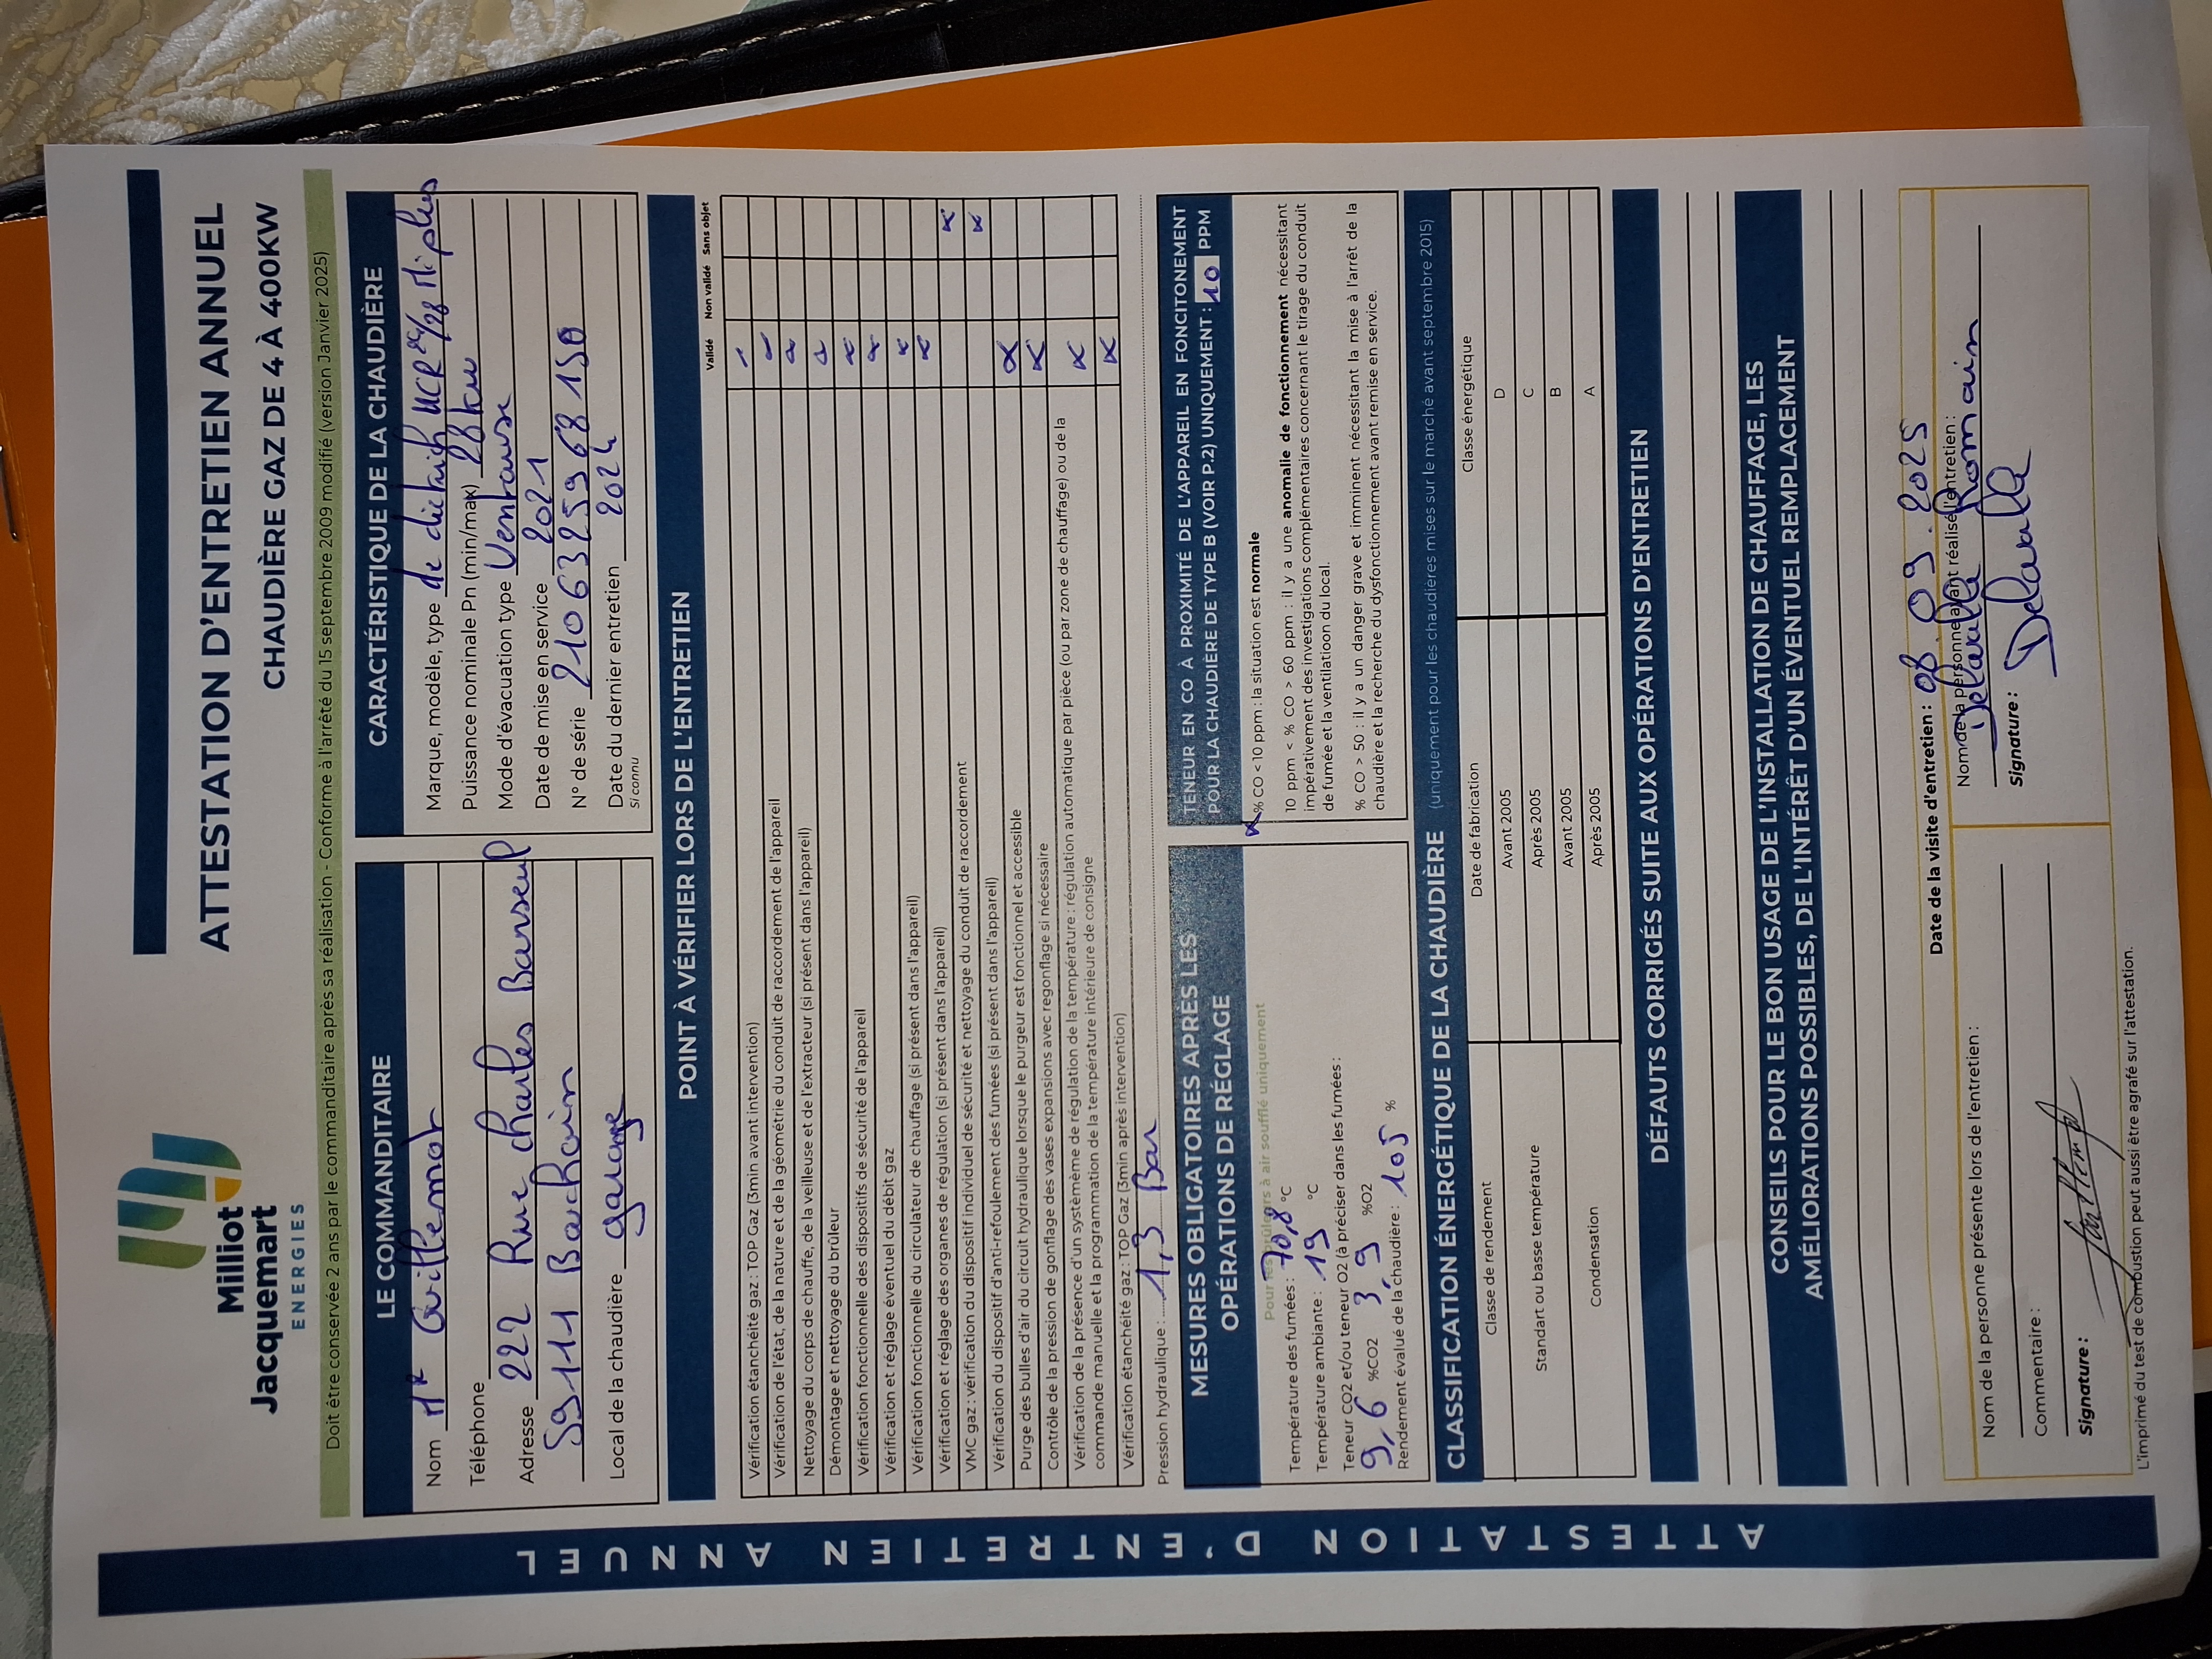 Milliot
Jacquemart
ENERGIES
ATTESTATION D'ENTRETIEN ANNUEL
CHAUDIÈRE GAZ DE 4 À 400KW
Doit être conservée 2 ans par le commanditaire après sa réalisation - Conforme à l'arrêté du 15 septembre 2009 modifié (version Janvier 2025)
LE COMMANDITAIRE
Nom Mr Guillemot
Téléphone
Adresse 222 Rue Charles
59111 Bouchain
Local de la chaudière garage
CARACTÉRISTIQUE DE LA CHAUDIÈRE
Marque, modèle, type de dietrich MCR 24/28 MI plus
Puissance nominale Pn (min/max) 28 kw
Mode d'évacuation type Ventouse
Date de mise en service 2021
N° de série 2106325968150
Date du dernier entretien 2024
Si connu
POINT À VÉRIFIER LORS DE L'ENTRETIEN
Validé Non validé Sans objet
Vérification étanchéité gaz : TOP Gaz (3min avant intervention)
Vérification de l'état, de la nature et de la géométrie du conduit de raccordement de l'appareil
Nettoyage du corps de chauffe, de la veilleuse et de l'extracteur (si présent dans l'appareil)
Démontage et nettoyage du bruleur
Vérification fonctionnelle des dispositifs de sécurité de l'appareil
Vérification et réglage éventuel du débit gaz
Vérification fonctionnelle du circulateur de chauffage (si présent dans l'appareil)
Vérification et réglage des organes de régulation (si présent dans l'appareil)
VMC gaz : vérification du dispositif individuel de sécurité et nettoyage du conduit de raccordement
Vérification du dispositif d'anti-refoulement des fumées (si présent dans l'appareil)
Purge des bulles d'air du circuit hydraulique lorsque le purgeur est fonctionnel et accessible
Contrôle de la pression de gonflage des vases expansions avec regonflage si nécessaire
Vérification de la présence d'un système de régulation de la température : régulation automatique par pièce (ou par zone de chauffage) ou de la
commande manuelle et la programmation de la température intérieure de consigne
Vérification étanchéité gaz : TOP Gaz (3min après intervention)
Pression hydraulique : 1,3 Bar
MESURES OBLIGATOIRES APRÈS LES
OPÉRATIONS DE RÉGLAGE
Pour les brûleurs à air soufflé uniquement
Température des fumées : 70,8 °C
Température ambiante : 19 °C
Teneur CO2 et/ou teneur O2 (à préciser dans les fumées :
9,6 %CO2 3,9 %O2
Rendement évalué de la chaudière : 105 %
TENEUR EN CO À PROXIMITÉ DE L'APPAREIL EN FONCITONEMENT
POUR LA CHAUDIÈRE DE TYPE B (VOIR P.2) UNIQUEMENT : 10 PPM
% CO <10 ppm : la situation est normale
10 ppm < % CO > 60 ppm : il y a une anomalie de fonctionnement nécessitant
impérativement des investigations complémentaires concernant le tirage du conduit
de fumée et la ventilation du local.
% CO > 50 : il y a un danger grave et imminent nécessitant la mise à l'arrêt de la
chaudière et la recherche du dysfonctionnement avant remise en service.
CLASSIFICATION ÉNERGÉTIQUE DE LA CHAUDIÈRE (uniquement pour les chaudières mises sur le marché avant septembre 2015)
Classe de rendement Date de fabrication Classe énergétique
Standart ou basse température Avant 2005 D
Après 2005 C
Condensation Avant 2005 B
Après 2005 A
DÉFAUTS CORRIGÉS SUITE AUX OPÉRATIONS D'ENTRETIEN
CONSEILS POUR LE BON USAGE DE L'INSTALLATION DE CHAUFFAGE, LES
AMÉLIORATIONS POSSIBLES, DE L'INTÉRÊT D'UN ÉVENTUEL REMPLACEMENT
Date de la visite d'entretien : 08.09.2025
Nom de la personne présente lors de l'entretien :
Commentaire :
Signature :
Nom de la personne ayant réalisé l'entretien :
Delaulle Romain
Signature : Delaulle
L'imprimé du test de combustion peut aussi être agrafé sur l'attestation.
ATTESTATION D'ENTRETIEN ANNUEL